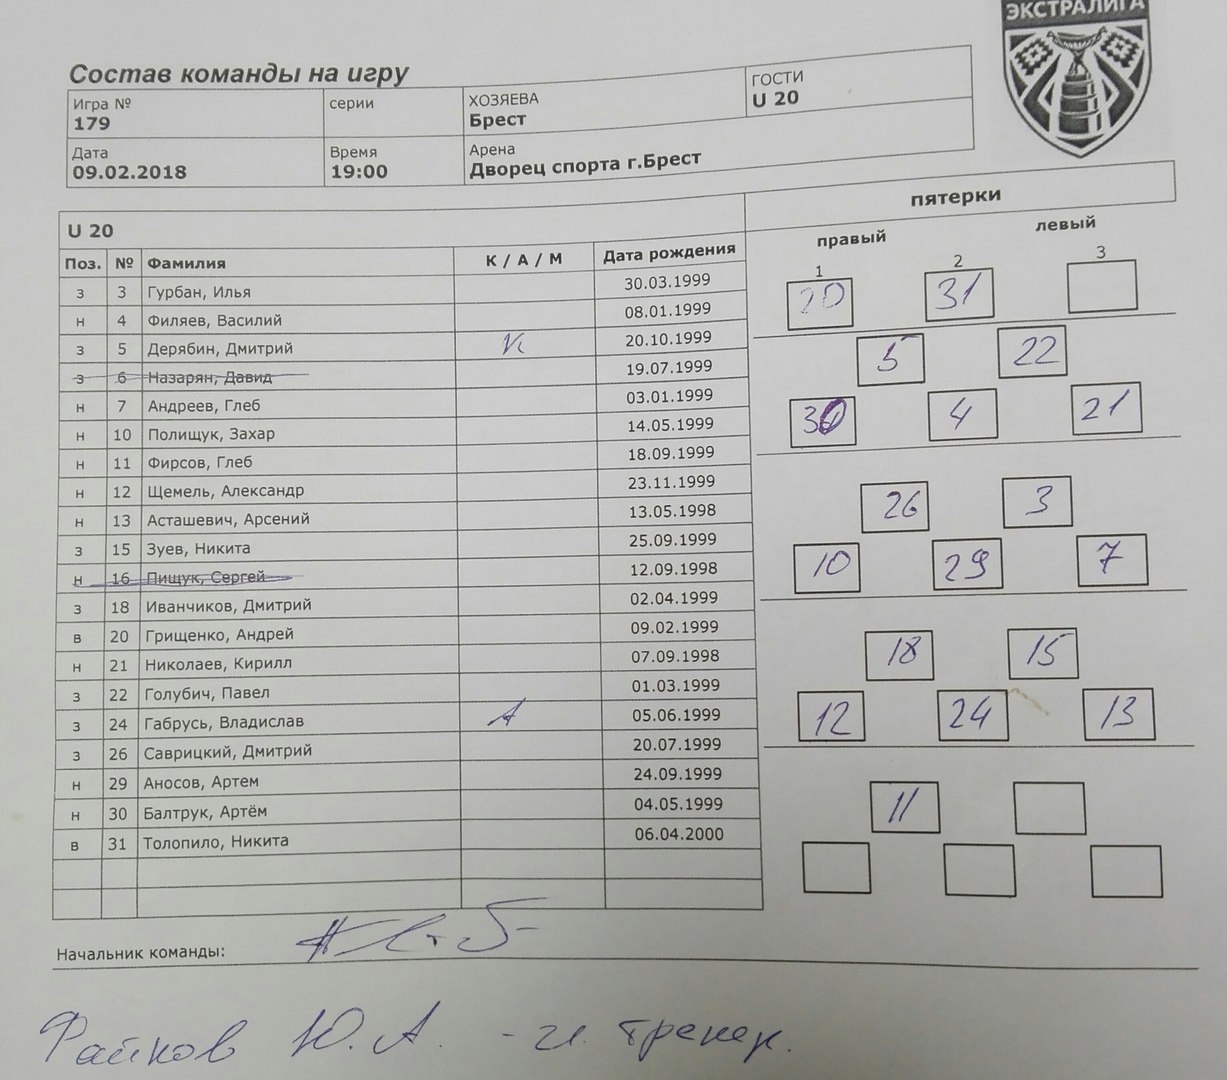 ЭКСТРАЛИГА
Состав команды на игру
Игра № серии ХОЗЯЕВА ГОСТИ
179 Брест U 20
Дата Время Арена
09.02.2018 19:00 Дворец спорта г.Брест
пятерки
U 20
правый левый
Поз. № Фамилия К / А / М Дата рождения
1 2 3
з 3 Гурбан, Илья 30.03.1999
20 31
н 4 Филяев, Василий 08.01.1999
з 5 Дерябин, Дмитрий К 20.10.1999
5 22
з 6 Назарян, Давид 19.07.1999
н 7 Андреев, Глеб 03.01.1999
30 4 21
н 10 Полищук, Захар 14.05.1999
н 11 Фирсов, Глеб 18.09.1999
н 12 Щемель, Александр 23.11.1999
26 3
н 13 Асташевич, Арсений 13.05.1998
з 15 Зуев, Никита 25.09.1999
10 29 7
н 16 Пищук, Сергей 12.09.1998
з 18 Иванчиков, Дмитрий 02.04.1999
в 20 Грищенко, Андрей 09.02.1999
18 15
н 21 Николаев, Кирилл 07.09.1998
з 22 Голубич, Павел 01.03.1999
12 24 13
з 24 Габрусь, Владислав А 05.06.1999
з 26 Саврицкий, Дмитрий 20.07.1999
н 29 Аносов, Артем 24.09.1999
11
н 30 Балтрук, Артём 04.05.1999
в 31 Толопило, Никита 06.04.2000
Начальник команды:
Файков Ю.А. - гл. тренер.